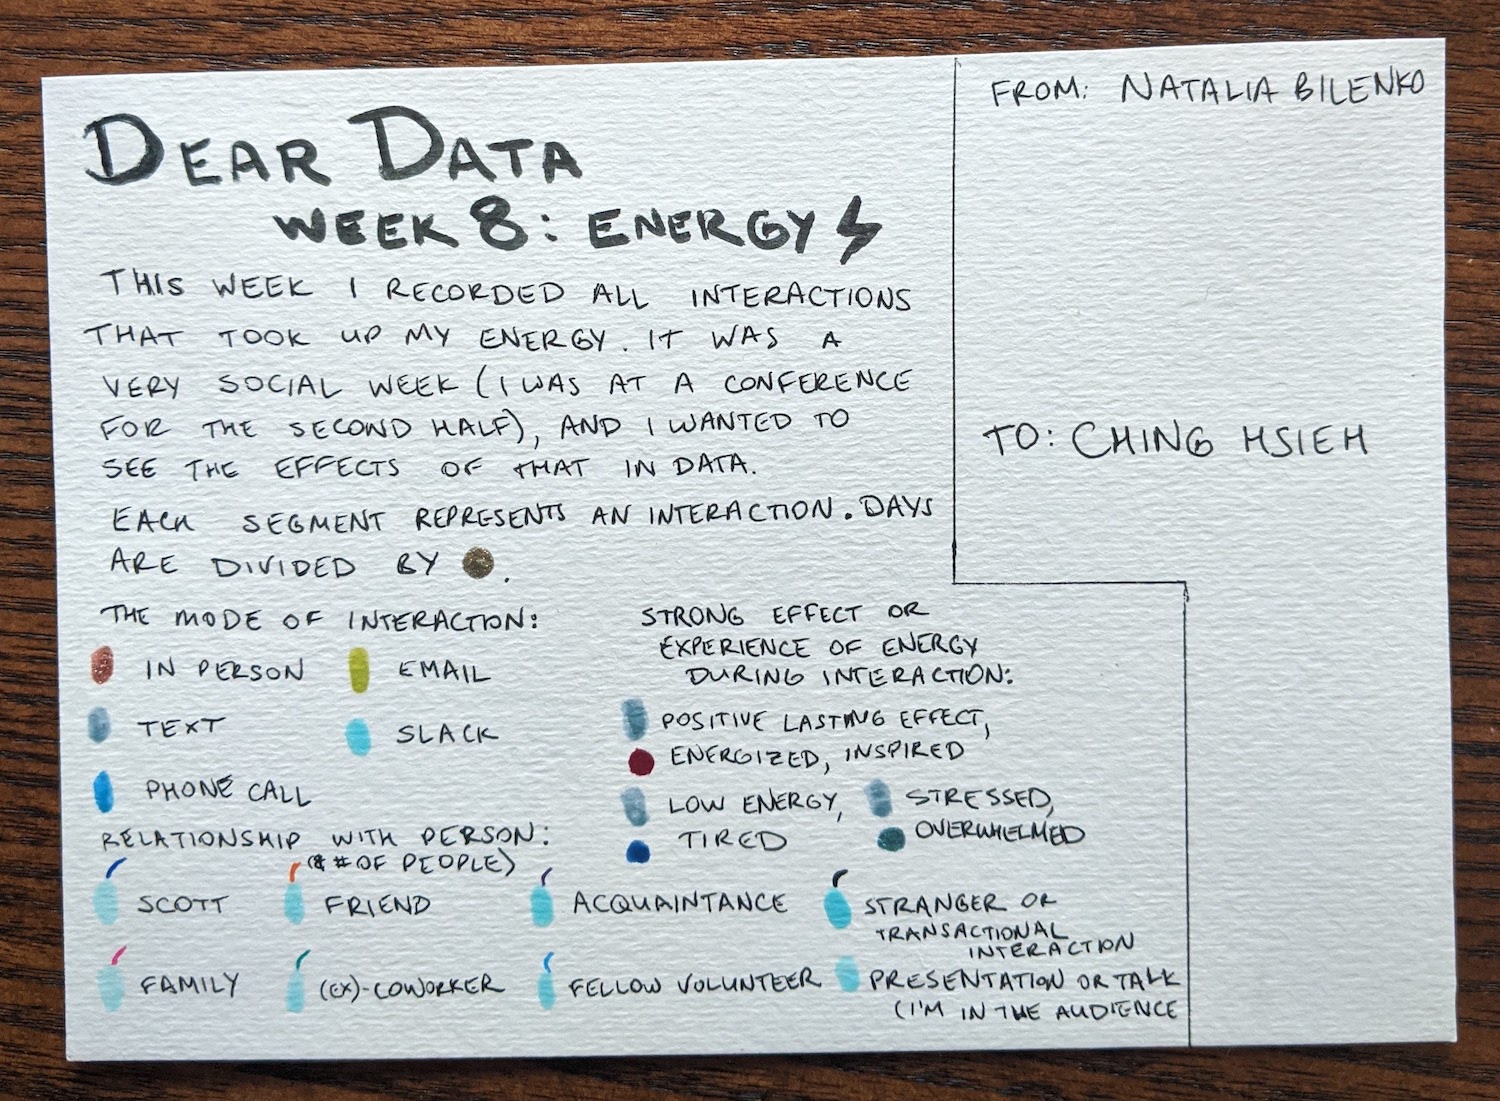 DEAR DATA
WEEK 8: ENERGY
THIS WEEK I RECORDED ALL INTERACTIONS
THAT TOOK UP MY ENERGY. IT WAS A
VERY SOCIAL WEEK (I WAS AT A CONFERENCE
FOR THE SECOND HALF), AND I WANTED TO
SEE THE EFFECTS OF THAT IN DATA.
EACH SEGMENT REPRESENTS AN INTERACTION. DAYS
ARE DIVIDED BY .
THE MODE OF INTERACTION:
IN PERSON
EMAIL
TEXT
SLACK
PHONE CALL
STRONG EFFECT OR
EXPERIENCE OF ENERGY
DURING INTERACTION:
POSITIVE LASTING EFFECT,
ENERGIZED, INSPIRED
LOW ENERGY,
TIRED
STRESSED,
OVERWHELMED
RELATIONSHIP WITH PERSON:
(& # OF PEOPLE)
SCOTT
FRIEND
ACQUAINTANCE
STRANGER OR
TRANSACTIONAL
INTERACTION
FAMILY
(EX)-COWORKER
FELLOW VOLUNTEER
PRESENTATION OR TALK
(I'M IN THE AUDIENCE
FROM: NATALIA BILENKO
TO: CHING HSIEH